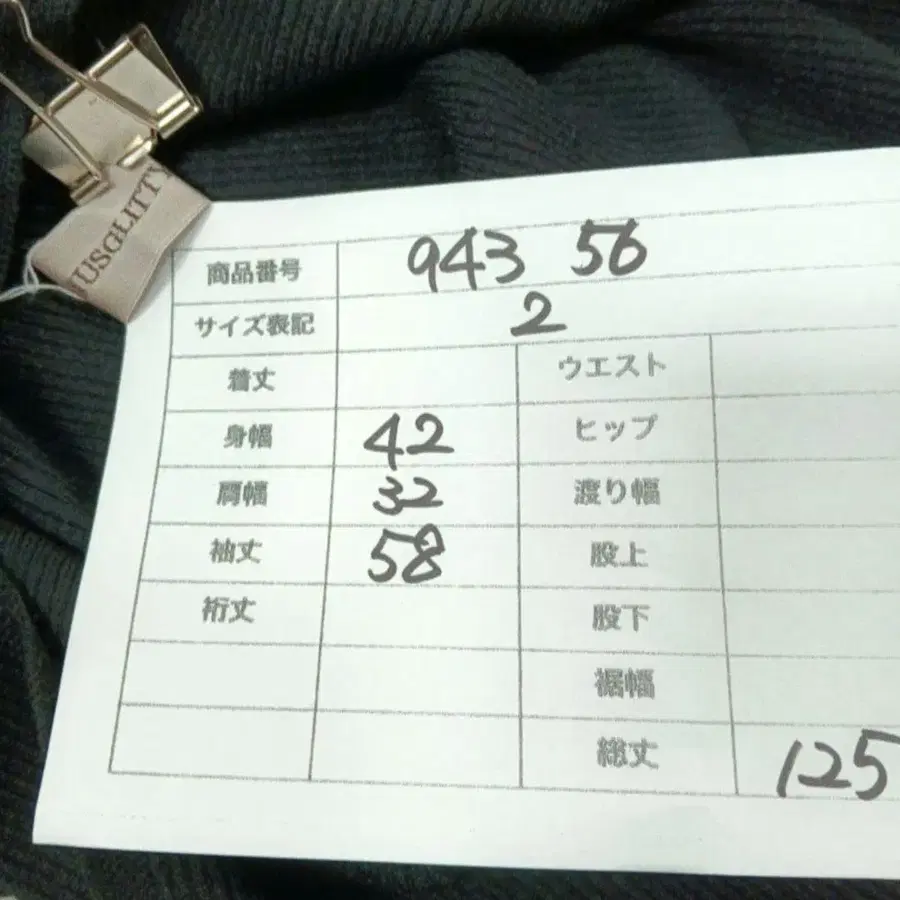 JUSGLITTY
商品番号 943 56
サイズ表記 2
着丈 ウエスト
身幅 42 ヒップ
肩幅 32 渡り幅
袖丈 58 股上
裄丈 股下
裾幅
総丈 125